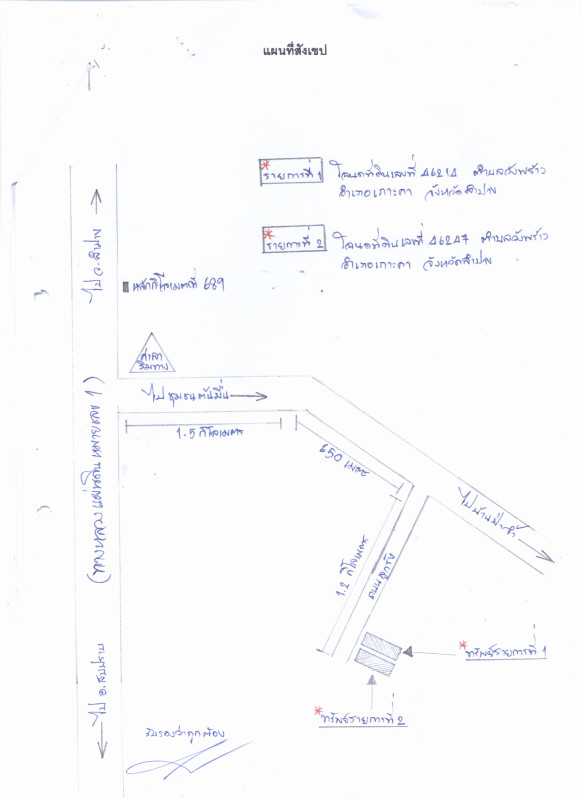 แผนที่สังเขป
รายการที่ 1 โฉนดที่ดินเลขที่ 46214 ตำบลวังพร้าว
อำเภอเกาะคา จังหวัดลำปาง
รายการที่ 2 โฉนดที่ดินเลขที่ 46247 ตำบลวังพร้าว
อำเภอเกาะคา จังหวัดลำปาง
ไป จ.ลำปาง
หลักกิโลเมตรที่ 689
ศาลา
ริมทาง
ไปชุมชน
1.5 กิโลเมตร
650 เมตร
(ทางหลวงแผ่นดินหมายเลข 1)
ไปบ้าน
1.2 กิโลเมตร
ถนนลูกรัง
*ทรัพย์รายการที่ 1
*ทรัพย์รายการที่ 2
ไป อ.สบปราบ
รับรองว่าถูกต้อง